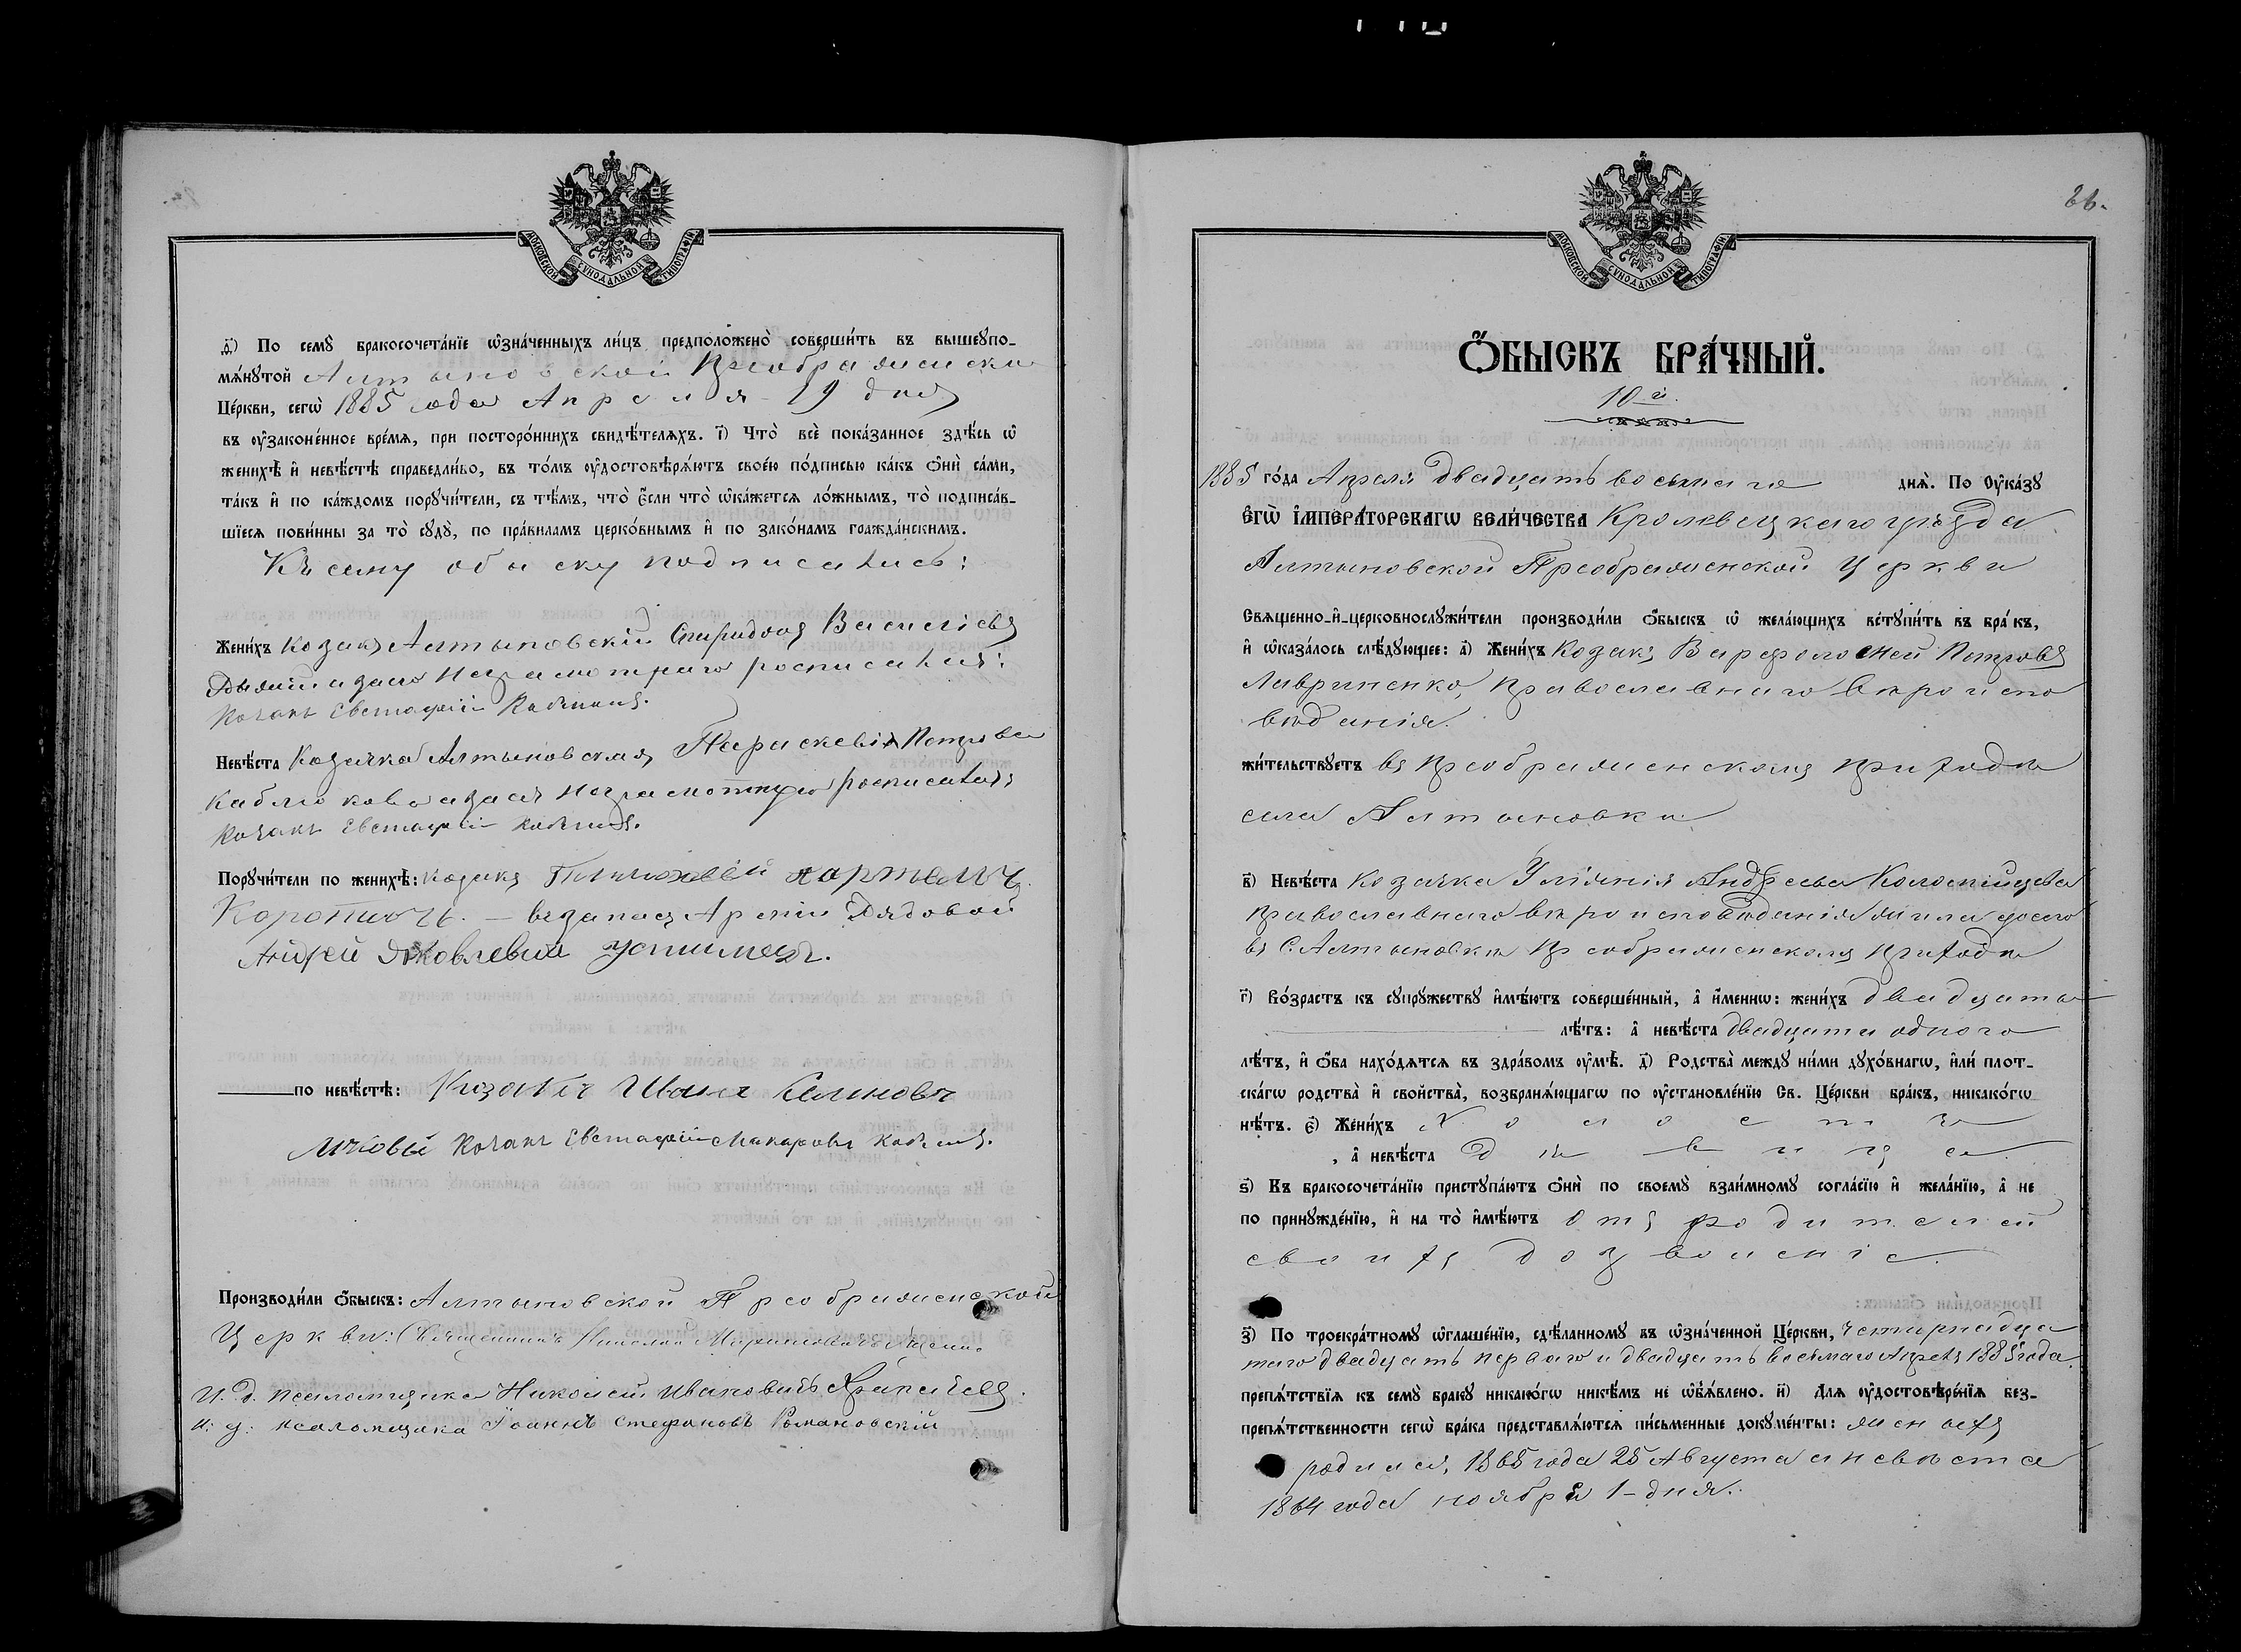 МОСКОВСКОЙ СУНОДАЛЬНОЙ ТИПОГРАФІИ
д҃) По семꙋ̀ бракосочета́нїе ѡ҆зна́ченныхъ ли́цъ предположено̀ соверши́ть въ вышеꙋпо-
мѧ́нꙋтой Алтыновской Преображенской
Це́ркви, сегѡ̀ 1885 года Апреля 29 дня
въ ᲂу҆законе́нное вре́мѧ, при посторо́ннихъ свидѣ́телѧхъ. і҃) Что̀ всѐ пока́занное здѣ́сь ѡ҆
женихѣ̀ и҆ невѣ́стѣ справедли́во, въ то́мъ ᲂу҆достовѣрѧ́ютъ свое́ю по́дписью ка́къ ѻ҆нѝ са́ми,
та́къ и҆ по ка́ждомъ порꙋчи́тели, съ тѣ́мъ, что̀ є҆́сли что̀ ѡ҆ка́жетсѧ ло́жнымъ, то̀ подписа́в-
шїесѧ пови́нны за то̀ сꙋдꙋ̀, по пра́виламъ церко́внымъ и҆ по зако́намъ гражда́нскимъ.
Къ сему обыску подписались:
Жени́хъ Козакъ Алтыновскій Спиридонъ Василіевъ
а за него неграмотнаго росписался:
Козакъ Евстафій
Невѣ́ста Козачка Алтыновская Параскевія Петрова
а за ея неграмотную росписался
Козакъ Евстафій
Порꙋчи́тели по женихѣ̀: козакъ Тимофей
Арсній Дядовой
Андрей Яковлевич Устименко.
по невѣ́стѣ: Козакъ Иванъ
Козакъ Евстафій Макаровъ
Производи́ли ѻ҆́быскъ: Алтыновской Преображенской
Церкви: Священникъ Николай
И. д. псаломщика Николай Ивановичъ
И. д. псаломщика Іоаннъ Стефановъ Романовскій
МОСКОВСКОЙ СУНОДАЛЬНОЙ ТИПОГРАФІИ
66.
Ѻ҆́БЫСКЪ БРА́ЧНЫЙ.
10-й.
1885 го́да Апреля двадцать восьмаго днѧ̀. По Оу҆ка́зꙋ
Є҆ГѠ̀ І҆МПЕРА́ТОРСКАГѠ ВЕЛИ́ЧЕСТВА Кролевецкаго уѣзда
Алтыновской Преображенской Церкви
Свѧщенно-и҆-церковнослꙋжи́тели производи́ли ѻ҆́быскъ ѡ҆ жела́ющихъ встꙋпи́ть въ бра́къ,
и҆ ѡ҆каза́лось слѣ́дꙋющее: а҃) Жени́хъ Козакъ Варфоломей Петровъ
Лавриненко, православнаго вѣроиспо
вѣданія.
жи́тельствꙋетъ въ Преображенскомъ приходѣ
села Алтыновки
в҃) Невѣ́ста Козачка Уліянія Андреева Коломійцева
православнаго вѣроисповѣданія жила
въ С. Алтыновкѣ Преображенскомъ приходѣ
г҃) Во́зрастъ къ сꙋпрꙋ́жествꙋ и҆мѣ́ютъ соверше́нный, а҆ и҆́меннѡ: жени́хъ двадцати
лѣ́тъ: а҆ невѣ́ста двадцати одного
лѣ́тъ, и҆ ѻ҆́ба нахо́дѧтсѧ въ здра́вомъ ᲂу҆мѣ̀. д҃) Родства̀ междꙋ ни́ми дꙋхо́внагѡ, и҆лѝ плот-
ска́гѡ родства̀ и҆ свойства̀, возбранѧ́ющагѡ по ᲂу҆становле́нїю Св. Це́ркви бра́къ, никако́гѡ
нѣ́тъ. є҃) Жени́хъ Холостъ
, а҆ невѣ́ста Дѣвица
ѕ҃) Къ бракосочета́нїю пристꙋпа́ютъ ѻ҆нѝ по своемꙋ̀ взаи́мномꙋ согла́сїю и҆ жела́нїю, а҆ не
по принꙋжде́нїю, и҆ на то̀ и҆мѣ́ютъ отъ родителей
своихъ дозволеніе.
з҃) По троекра́тномꙋ ѡ҆глаше́нїю, сдѣ́ланномꙋ въ ѡ҆зна́ченной Це́ркви, четырнадца
таго двадцать перваго и двадцать восьмаго Апреля 1885 года
препѧ́тствїѧ къ семꙋ̀ бракꙋ никако́гѡ никѣ́мъ не ѡ҆б̾ѧ́влено. и҃) Длѧ ᲂу҆достовѣре́нїѧ без-
препѧ́тственности сегѡ̀ бра́ка представлѧ́ютсѧ пи́сьменные докꙋме́нты: женихъ
родился, 1865 года 25 Августа а невѣста
1864 года ноября 1-дня.